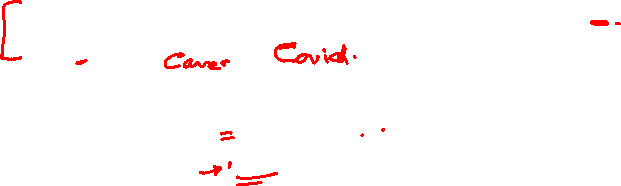 Cancer Covid.